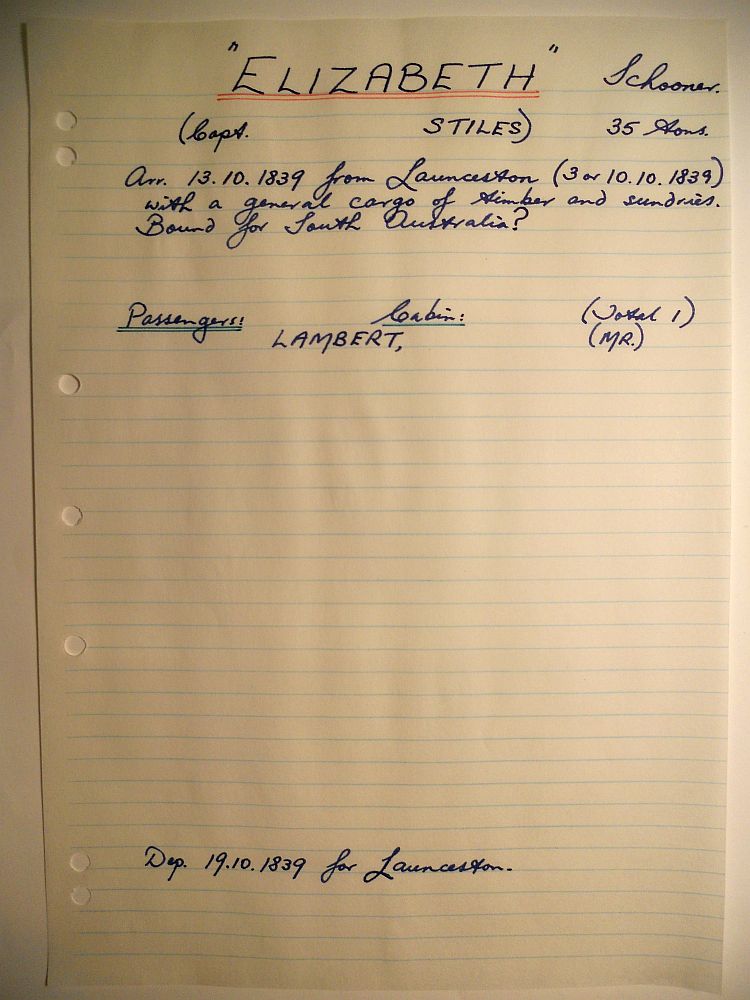 "ELIZABETH" Schooner.
(Capt. STILES) 35 tons.
Arr. 13.10.1839 from Launceston (3 or 10.10.1839)
with a general cargo of timber and sundries.
Bound for South Australia?
Passengers: Cabin: (Total 1)
LAMBERT, (MR.)
Dep. 19.10.1839 for Launceston.